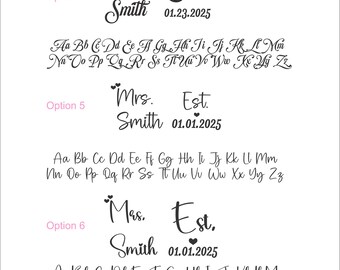 Smith 01.23.2025
Aa Bb Cc Dd Ee Ff Gg Hh Ii Jj Kk Ll Mm
Nn Oo Pp Qq Rr Ss Tt Uu Vv Ww Xx Yy Zz
Option 5 Mrs. Est.
Smith 01.01.2025
Aa Bb Cc Dd Ee Ff Gg Hh Ii Jj Kk Ll Mm
Nn Oo Pp Qq Rr Ss Tt Uu Vv Ww Xx Yy Zz
Option 6 Mrs. Est.
Smith 01.01.2025
Aa Bb Cc Dd Ee Ff Gg Hh Ii Jj Kk Ll Mm